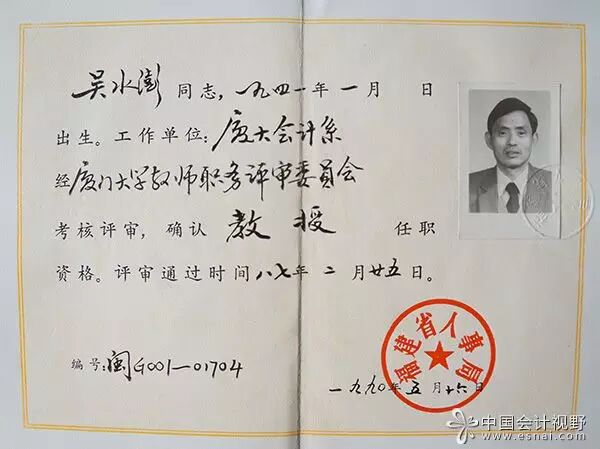 吴水澎同志，一九四一年一月 日
出生。工作单位：厦大会计系
经厦门大学教师职务评审委员会
考核评审，确认 教授 任职
资格。评审通过时间八七年二月廿五日。
编号：闽G001—01704
福建省人事局
一九九〇年五月十六日
中国会计视野
www.esnai.com